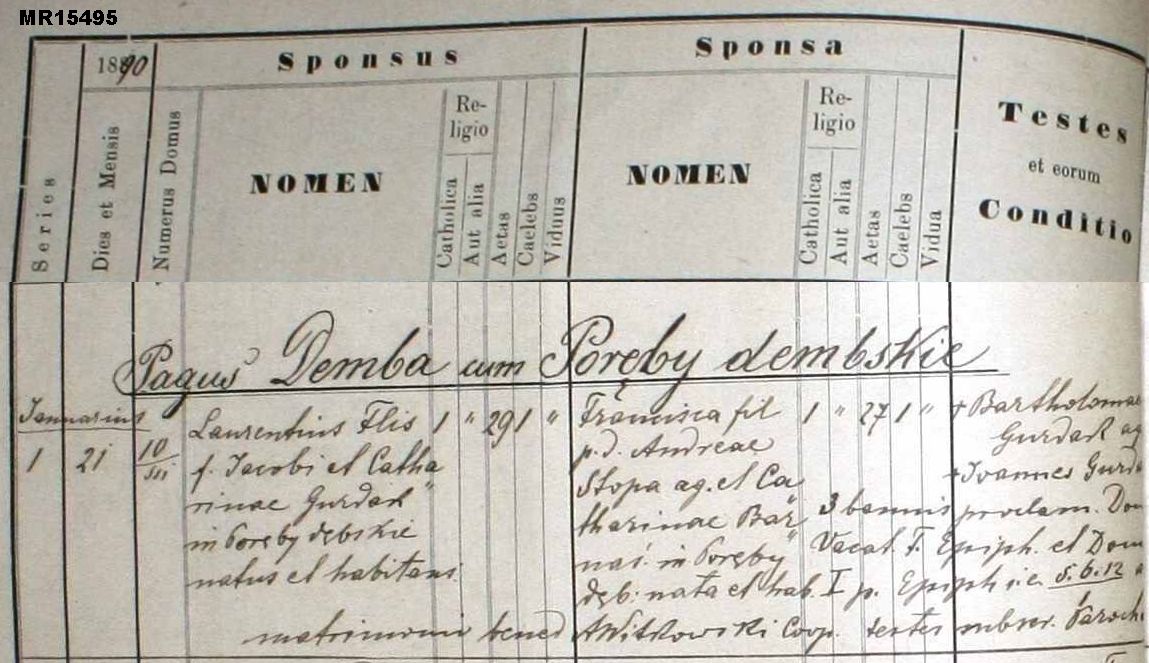 MR15495
1890 Sponsus Sponsa
Series
Dies et Mensis
Numerus Domus
NOMEN
Re-
ligio
Catholica
Aut alia
Aetas
Caelebs
Viduus
NOMEN
Re-
ligio
Catholica
Aut alia
Aetas
Caelebs
Vidua
Testes
et eorum
Conditio
Pagus Demba cum Poręby dembskie
Januarius
1 21 10
Laurentius Flis 1 " 29 1 "
f. Jacobi et Catha
rinae Gurdak
in Poręby dębskie
natus et habitans
Francisca fil 1 " 27 1 "
p. d. Andreae
Stopa ag. et Ca
tharinae Bar
naś in Poręby
dęb. nata et hab.
+ Bartholomae
Gurdak ag
+ Joannes Gurd
3 bannis proclam. Dom
Vacat F. Epiph. et Dom
I p. Epiph i.e. 5. 6. 12
matrimonii bened AWitkowski Coop. testes subscr. Paroch.